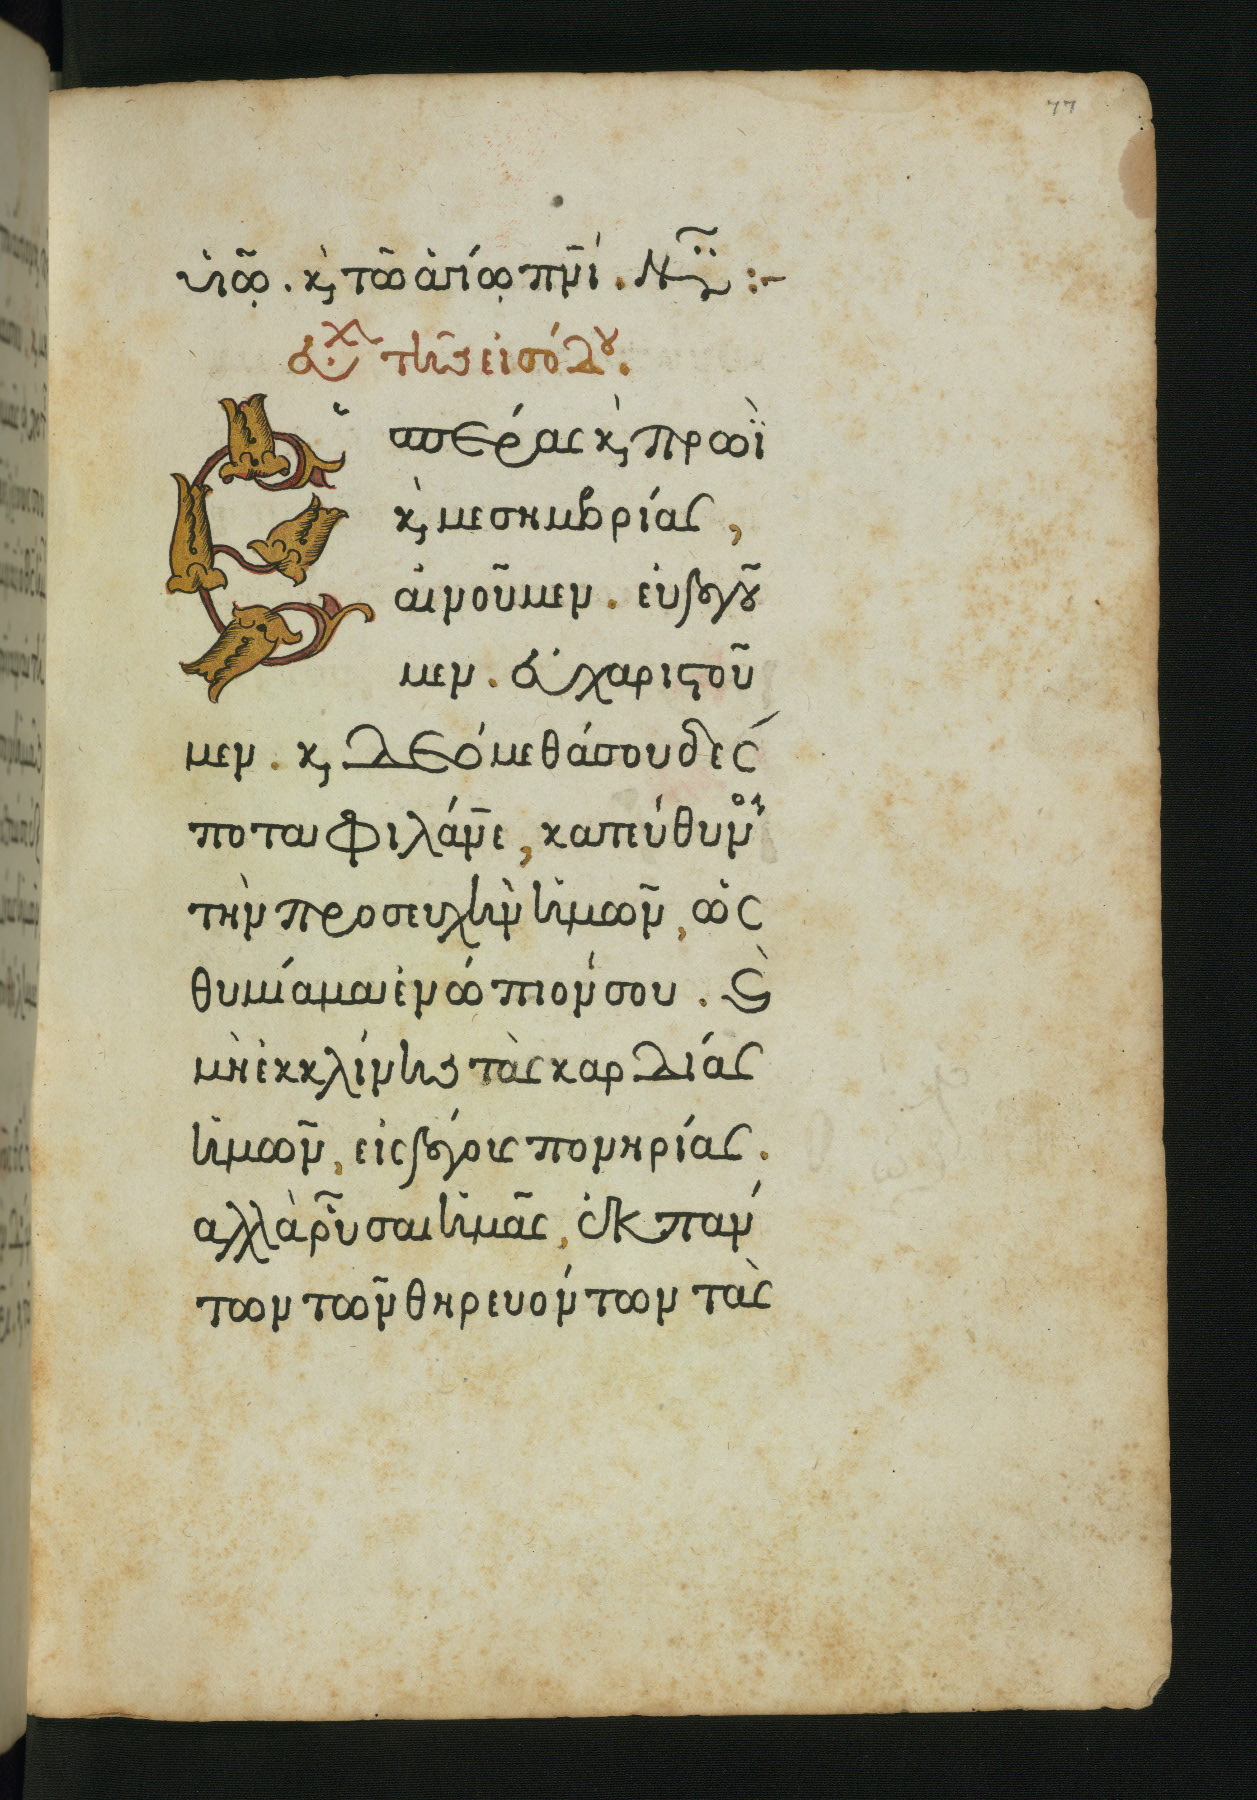 77
υἱῶ. κ, τῶ ἁγίω πνι. Νυ :-
εὐχ τῆς εἰσόδου.
Ἑσπέρας κ, πρωῒ
κ, μεσημβρίας,
αἰνοῦμεν. εὐλογοῦ
μεν. εὐχαριστοῦ
μεν. κ, δεόμεθά σου δέσ
ποτα φιλάνε, κατεύθυνον
τὴν προσευχὴν ἡμῶν, ὡς
θυμίαμα ἐνώπιόν σου. καὶ
μὴ ἐκκλίνης τὰς καρδίας
ἡμῶν, εἰς λόγους πονηρίας.
αλλὰ ῥῦσαι ἡμᾶς, ἐκ πάν
των τῶν θηρευόντων τὰς